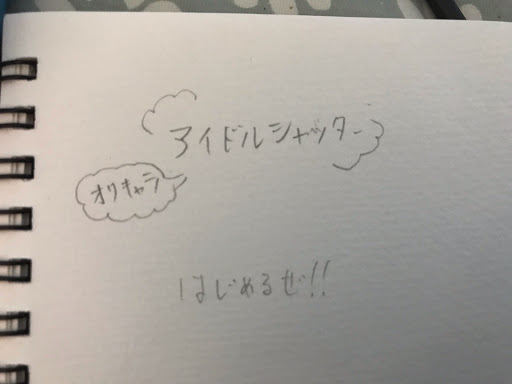 アイドルシャッター
オリキャラ
はじめるぜ!!